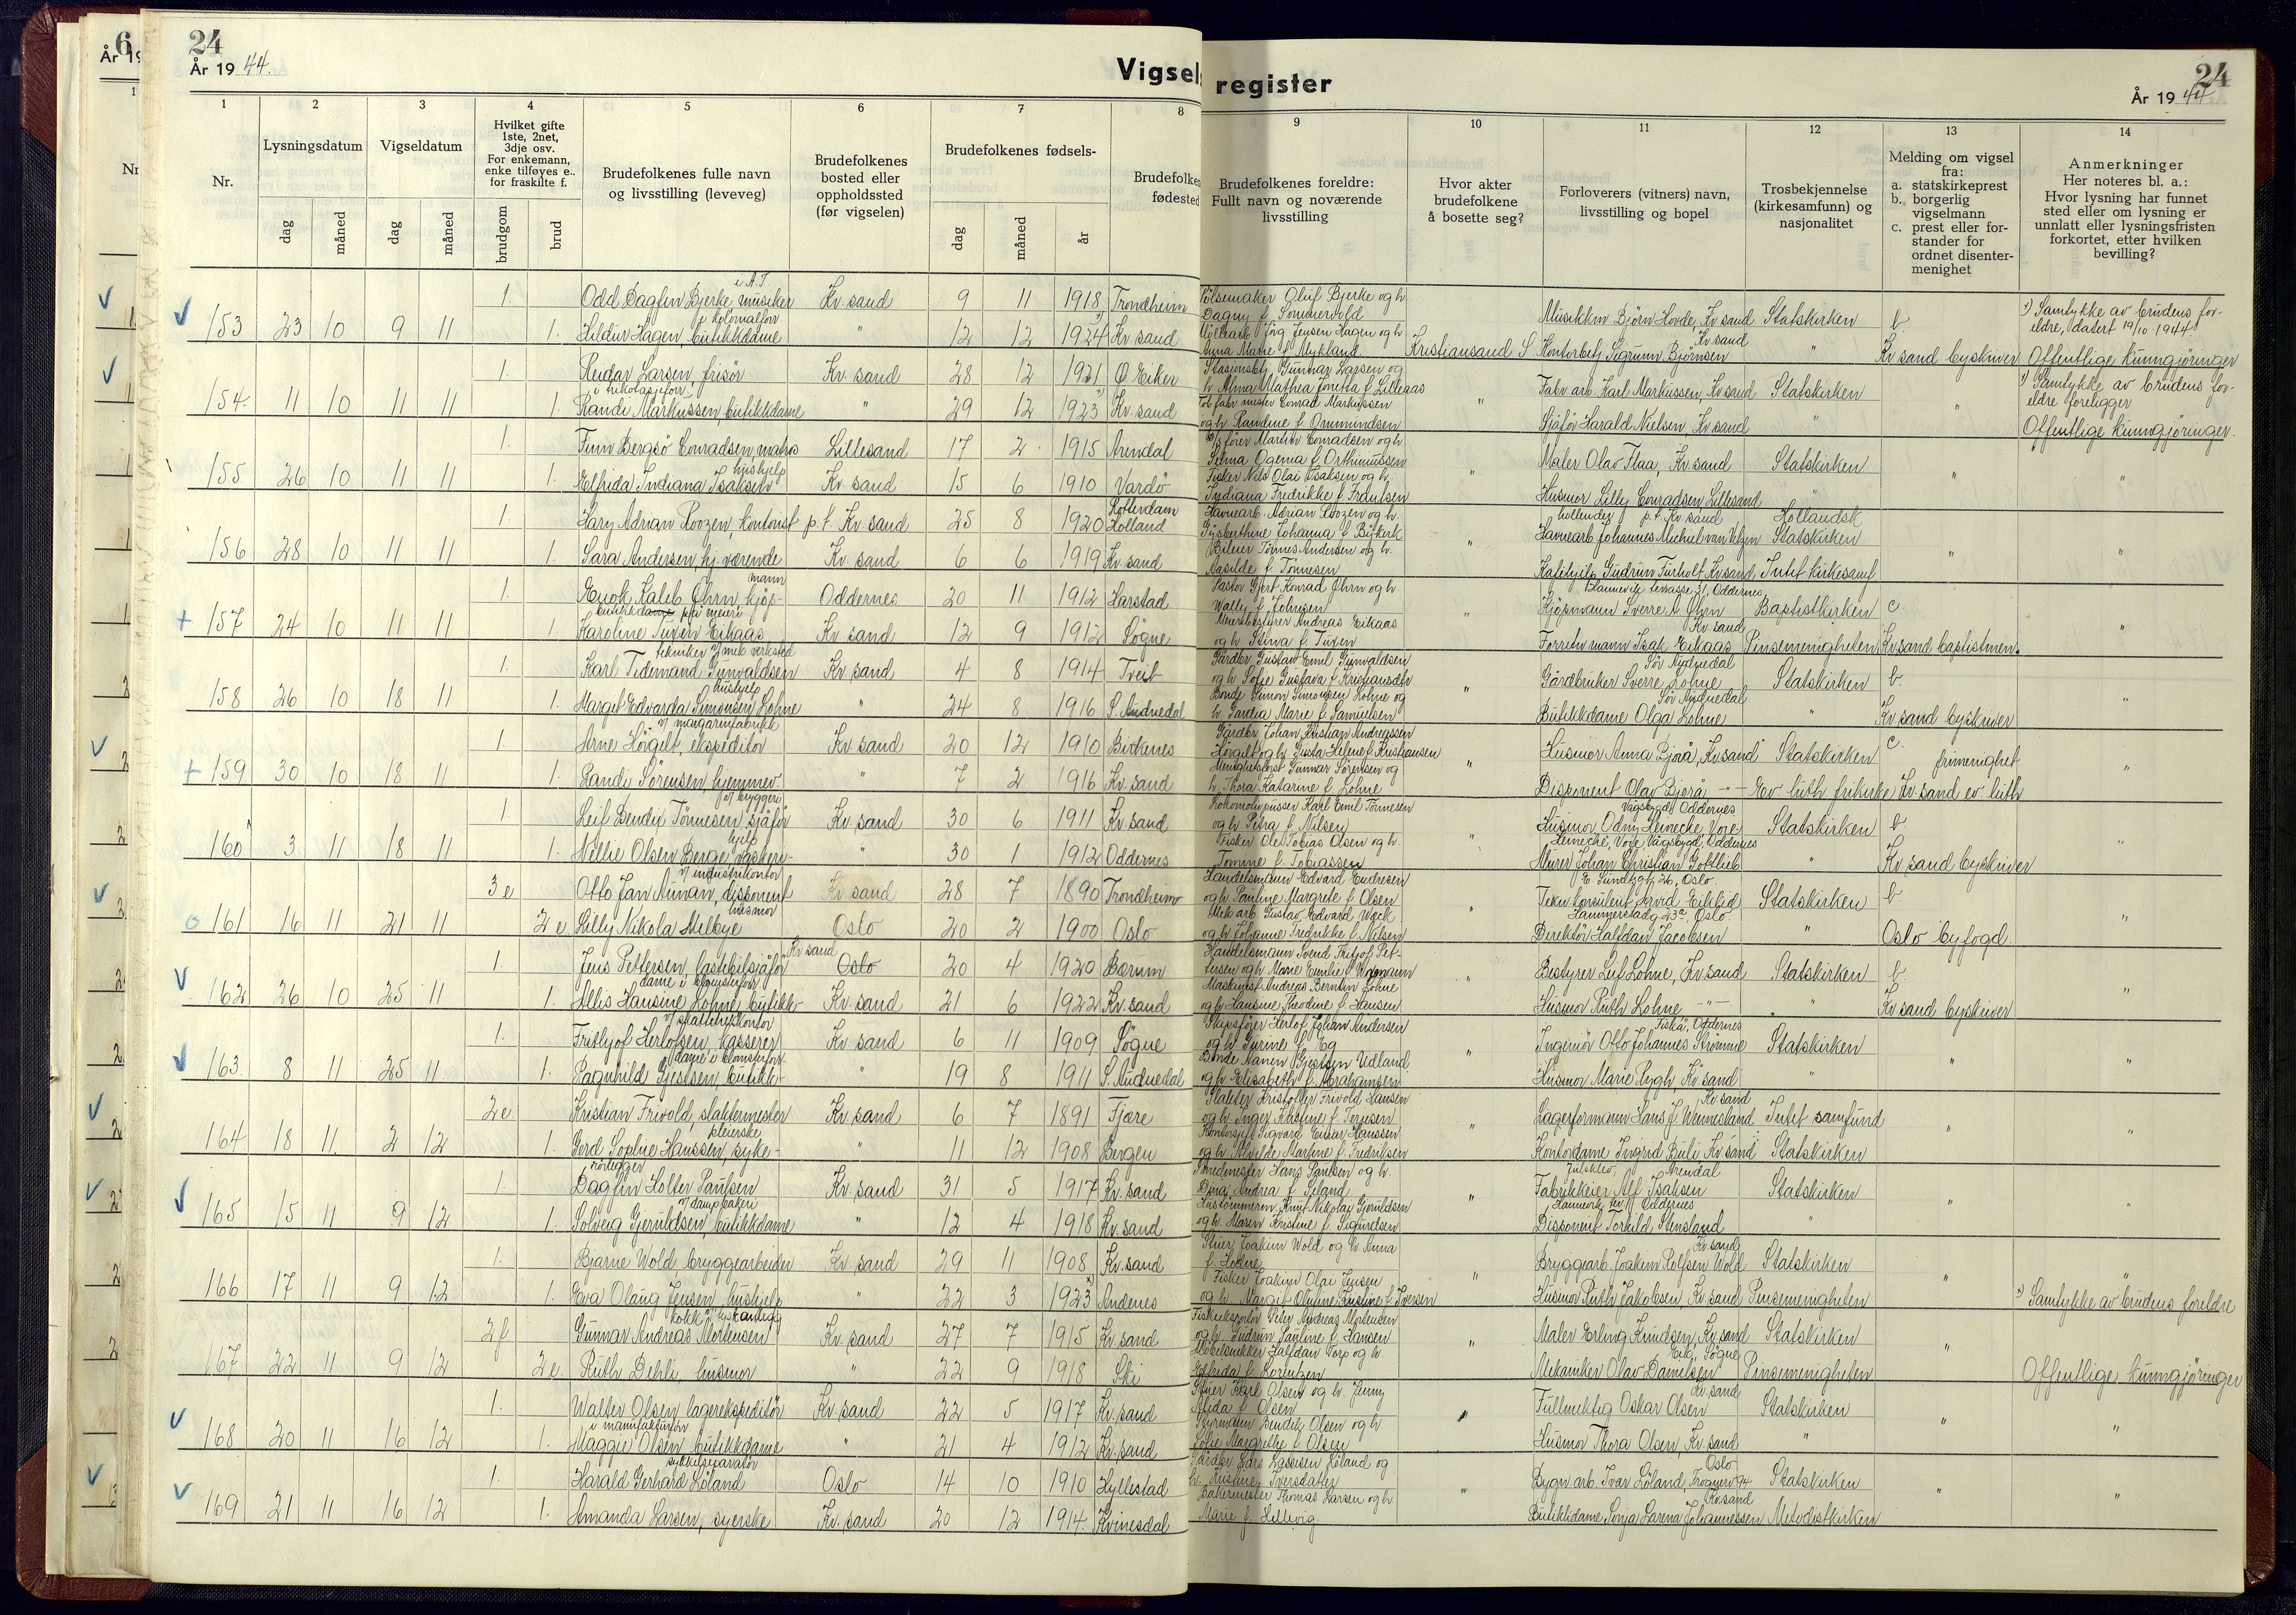 6
År 19
24
År 1944.
Vigsels
register
24
År 1944
1
Nr.
2
Lysningsdatum
dag
måned
3
Vigseldatum
dag
måned
4
Hvilket gifte
1ste, 2net,
3dje osv.
For enkemann,
enke tilføyes e..
for fraskilte f.
brudgom
brud
5
Brudefolkenes fulle navn
og livsstilling (leveveg)
6
Brudefolkenes
bosted eller
oppholdssted
(før vigselen)
7
Brudefolkenes fødsels-
dag
måned
år
8
Brudefolkene
fødested
9
Brudefolkenes foreldre:
Fullt navn og noværende
livsstilling
10
Hvor akter
brudefolkene
å bosette seg?
11
Forloverers (vitners) navn,
livsstilling og bopel
12
Trosbekjennelse
(kirkesamfunn) og
nasjonalitet
13
Melding om vigsel
fra:
a. statskirkeprest
b. borgerlig
vigselmann
c. prest eller for-
stander for
ordnet disenter-
menighet
14
Anmerkninger
Her noteres bl. a.:
Hvor lysning har funnet
sted eller om lysning er
unnlatt eller lysningsfristen
forkortet, etter hvilken
bevilling?
i A.T.
1. Odd Dagfin Bjerke musiker Kr. sand 9 11 1918 Trondheim Pølsemaker Oluf Bjerke og h. Dagny f. Sommervold Musikkm Bjørn Hovde, Kr sand Statskirken b. Samtykke av brudens for-
eldre, datert 19/10 1944
i kolonialforr
153 23 10 9 11 1. Hildur Hagen, butikkdame " 12 12 1924 Kr sand Jørg Jensen Hagen og h. Anna Marie f. Mykland Kristiansand S Kontorbetj Sigrunn Björnsen Kr sand " Kr sand byskriver Offentlige kunngjøringer
1. Reidar Larsen, frisør Kr. sand 28 12 1921 Ø. Eiker Stasjonsbtj. Gunnar Larsen og h. Alma Mathea Josetta f. Lilleaas Fabr arb. Karl Markussen, Kr sand Statskirken Samtykke av brudens for-
eldre foreligger
i trikotasjeforr
154. 11 10 11 11 1. Randi Markussen, butikkdame " 29 12 1923 Kr. sand Tob. fabr mester Conrad Markussen og h. Randine f. Ommundsen " Sjåför Harald Nielsen, Kr sand " " Offentlige kunngjøringer.
1. Finn Bergsö Conradsen, matros Lillesand 17 2 1915 Arendal fører Martin Conradsen og h. Selma Ogema f. Orthimussen Maler Olav Flaa, Kr. sand Statskirken
hushjelp
155 26 10 11 11 1. Elfrida Indiana Isaksen Kr. sand 15 6 1910 Vardö Fisker Nils Olai Isaksen og h. Indiana Fredrikke f. Frantsen " Husmor Lilly Conradsen Lillesand " " "
1. Hary Adrian Roozen, kontorist p. t. Kr. sand 25 8 1920 Rotterdam Holland Havnearb. Adrian Roozen og h. Gÿsberthine Johanna f. Bÿkerk hollender p.t. Kr. sand Havnearb Johannes Michiel van Velzen Hollandsk Statskirken
156 28 10 11 11 1. Sara Andersen, hj. værende Kr. sand 6 6 1919 Kr. sand Bileier Tönnes Andersen og h. Aasilde f. Tönnesen " Kafehjelp Gudrun Furholt Kr sand Intet kirkesamf " "
mann
1. Enok Kaleb Öhrn, kjöp- Oddernes 20 11 1912 Harstad Pastor Gert Konrad Öhrn og h. Wally f. Johnsen Kjöpmann Sverre Öhrn Oddernes Baptistkirken c.
157 24 10 11 11 1. Karoline Tuxen Eikaas Kr. sand 12 9 1912 Søgne Meieribestyrer Andreas Eikaas og h. Stina f. Tuxen " Forretn mann Isak Eikaas Kr sand Pinsemenigheten Kr. sand baptistmen. "
tekniker v/ mek verksted
1. Karl Tidemand Gunvaldsen Kr sand 4 8 1914 Tveit Gårdbr Gustav Emil Gunvaldsen og h Sofie Gustava f. Kristiansdtr Gårdbruker Sverre Lohne Sör Audnedal Statskirken b.
hushjelp
158 26 10 18 11 1. Margit Edvarda Simonsen Lohne " 24 8 1916 S. Audnedal Bonde Simon Simonsen Lohne og h. Tardia Marie f. Samuelsen " Butikkdame Olga Lohne Sör Audnedal " Kr sand byskriver "
v/ margarinfabrikk
1 Arne Hörgelt, ekspeditör Kr. sand 20 12 1910 Birkenes Gårdbr Johan Kristian Andreassen Hörgelt og h. Gusta Helene f. Kristiansen Husmor Anna Bjorå, Kr. sand Statskirken c. frimenighet
159 30 10 18 11 1. Randi Sörensen, hjemmev. " 7 2 1916 Kr. sand Menighetsforst Gunnar Sörensen og h. Thora Katarine f. Lohne " Disponent Olav Bjorå –"– Ev. luth frikirke Kr. sand ev luth "
v/ bryggeri
1 Leif Bendix Tönnesen sjåför Kr. sand 30 6 1911 Kr sand Lokomotivpusser Karl Emil Tönnesen og h. Petra f. Nilsen Husmor Odny Heinecke, Voie Vågsbygd, Oddernes Statskirken b.
hjelp
160 3 11 18 11 1. Nellie Olsen Berge, vaskeri- " 30 1 1912 Oddernes Fisker Ole Tobias Olsen og h. Tomine f. Tobiassen " Murer Johan Christian Gottlieb Heinecke, Voie, Vågsbygd, Oddernes " Kr sand byskriver "
v/ industrikontor
3 e Otto Jan Aunan, disponent Kr sand 28 7 1890 Trondheim Handelsmann Edvard Endresen og h. Pauline Margrete f. Olsen Tekn konsulent Arvid Eiklid E. Sundtsgt 26, Oslo Statskirken b
husmor
161 16 11 21 11 2 e Lilly Nikola Melbye Oslo 20 2 1900 Oslo Mek arb. Gustav Edvard Weck og h. Johanne Fredrikke f. Nilsen " Direktör Halfdan Jacobsen Hammerstadg 23a, Oslo " Oslo byfogd "
1. Jens Pettersen, lastebilsjåför Kr sand Oslo 20 4 1920 Bærum Handelsmann Svend Fritjof Pet-
tersen og h Marie Emilie f. Wormann Bestyrer Leif Lohne, Kr. sand Statskirken b
dame i blomsterforr
162 26 10 25 11 1. Allis Hansine Lohne, butikk- Kr. sand 21 6 1922 Kr. sand Maskinist Andreas Berntin Lohne og h. Hansine Theodine f. Hansen " Husmor Ruth Lohne –"– " Kr sand byskriver "
v/ skattetrekkontor
1. Frithjof Herlofsen, kasserer Kr. sand 6 11 1909 Søgne Skipsfører Herlof Johan Andersen og h. Gurine f. Eg Ingeniör Otto Johannes Strömme Fiskå, Oddernes Statskirken
dame i blomsterforr
163. 8 11 25 11 1. Ragnhilde Gjestsen, butikk- " 19 8 1911 S. Audnedal Bonde Aanen Gjestsen Udland og h. Elisabeth f. Abrahamsen " Husmor Marie Rygh, Kr sand " " "
2 e Kristian Frivold, slaktermester Kr. sand 6 7 1891 Fjære Slakter Kristoffer Frivold Hansen og h. Inger Kristine f. Terjesen Lagerformann Hans J. Wennesland Kr. sand Intet samfund
pleierske
164 18 11 2 12 1. Gerd Sophie Hanssen, syke- " 11 12 1908 Bergen Kontorsjef Sigvard Einar Hanssen og h. Alvilde Martine f. Fredriksen " Kontordame Ingrid Bue Kr sand Statskirken " "
rörlegger
1. Dagfin Holter Paulsen Kr. sand 31 5 1917 Kr. sand Smedmester Hans Paulsen og h. Dina Andrea f. Seland Fabrikkeier Alf Isaksen Arendal Statskirken
v/ dampbakeri
165 15 11 9 12 1. Solveig Gjeruldsen, butikkdame " 12 4 1918 Kr. sand Hustömmerm. Knut Nikolai Gjeruldsen og h. Maren Kristine f. Sigurdsen " Disponent Torkild Stensland Oddernes " " "
1. Bjarne Wold, bryggearbeider Kr. sand 29 11 1908 Kr. sand Stuer Joakim Wold og h. Anna f. Holme Bryggearb. Joakim Rolfsen Wold Kr. sand Statskirken
166 17 11 9 12 1. Eva Olaug Jensen, hushjelp " 22 3 1923 Andenes Fisker Joakim Olai Jensen og h. Margit Otuline Kristine f. Iversen " Husmor Ruth Jakobsen, Kr. sand Pinsemenigheten " Samtykke av brudens foreldre
2 f Gunnar Andreas Mortensen Kr. sand 27 7 1915 Kr. sand Fiskeeksportör Peter Andreas Mortensen og h. Gudrun Pauline f. Hansen Maler Erling Knudsen, Kr sand Statskirken
167 22 11 9 12 2 e. Ruth Dehli, husmor " 22 9 1918 Ski Möbelsnekker Halfdan Torp og h. Elfrida f. Lorentzen " Mekaniker Olav Danielsen Eig, Søgne Pinsemenigheten " Offentlige kunngjøringer
1. Walter Olsen, lagerekspeditör Kr. sand 22 5 1917 Kr. sand Stuer Karl Olsen og h. Jenny Alida f. Olsen Fullmektig Oskar Olsen Kr. sand Statskirken
i manufakturforr
168 20 11 16 12 1. Maggie Olsen, butikkdame " 21 4 1912 Kr. sand Styrmann Bendik Olsen og h. Lovise Margrethe f. Olsen " Husmor Thora Olsen, Kr. sand " "
sykkelreparatör
1. Harald Gerhard Löland Oslo 14 10 1910 Hyllestad Gårdbr Lars Lassesen Löland og h. Kristine Iversdatter Bygn arb. Ivar Löland, Frognerv. 94 Oslo Statskirken
169 21 11 16 12 1. Amanda Larsen, syerske Kr. sand 20 12 1914. Kvinesdal Bakermester Thomas Larsen og h. Marie f. Lillevig " Butikkdame Sonja Larena Johannessen Kr. sand Metodistkirken " "